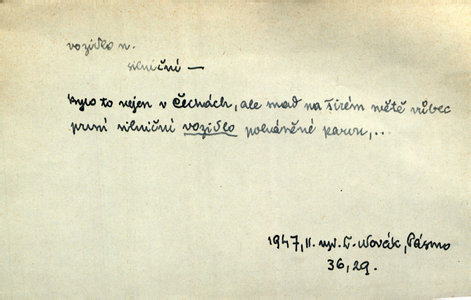 vozidlo n.
silniční —
bylo to nejen v Čechách, ale snad na širém světě vůbec
první silniční vozidlo poháněné parou,...
1947, II. vyd. L. Novák, Pásmo
36, 29.